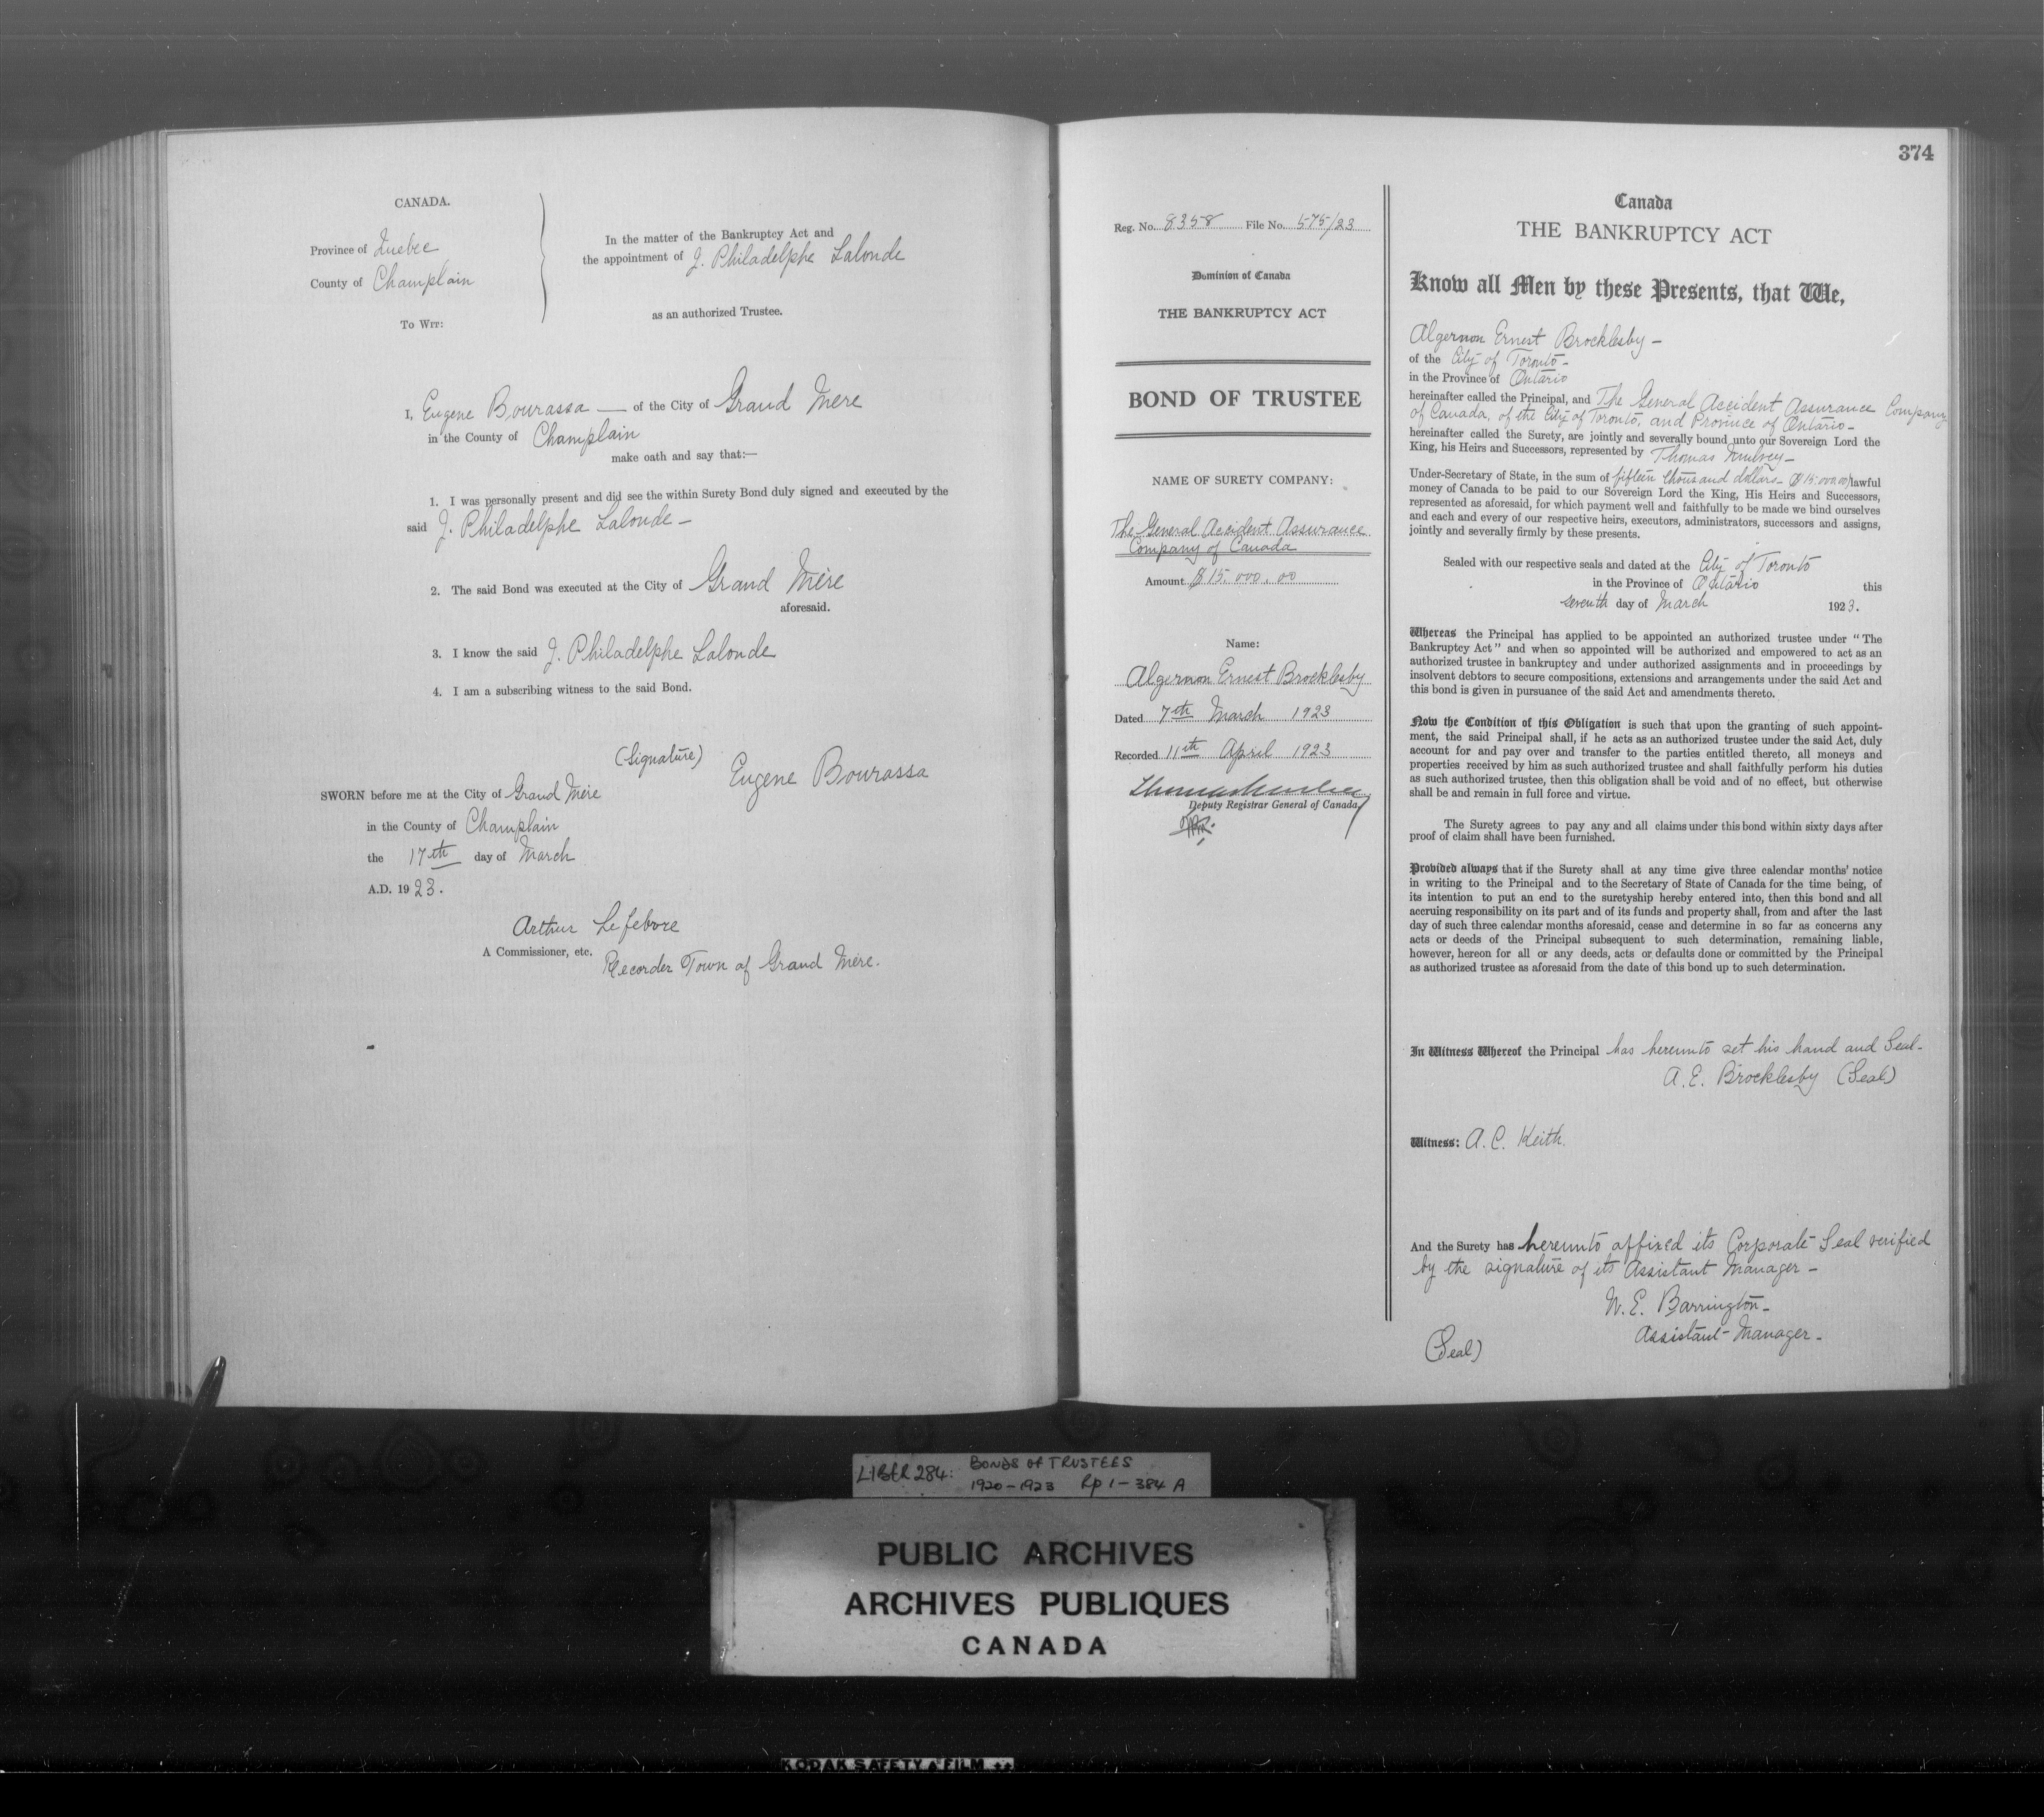 CANADA.
Province of Quebec
County of Champlain
To Wit:
In the matter of the Bankruptcy Act and
the appointment of J. Philadelphe Lalonde
as an authorized Trustee.
I, Eugene Bourassa — of the City of Grand Mere
in the County of Champlain
make oath and say that:—
1. I was personally present and did see the within Surety Bond duly signed and executed by the
said J. Philadelphe Lalonde –
2. The said Bond was executed at the City of Grand Mère
aforesaid.
3. I know the said J. Philadelphe Lalonde
4. I am a subscribing witness to the said Bond.
(Signature) Eugene Bourassa
SWORN before me at the City of Grand Mère
in the County of Champlain
the 17th day of March
A.D. 1923.
Arthur Lefebvre
A Commissioner, etc. Recorder Town of Grand Mère.
374
Reg. No. 8358 File No. 575/23
Dominion of Canada
THE BANKRUPTCY ACT
BOND OF TRUSTEE
NAME OF SURETY COMPANY:
The General Accident Assurance
Company of Canada
Amount $15,000.00
Name:
Algernon Ernest Brocklesby
Dated 7th March 1923
Recorded 11th April 1923
Thomas Mulvey
Deputy Registrar General of Canada
Canada
THE BANKRUPTCY ACT
Know all Men by these Presents, that We,
Algernon Ernest Brocklesby –
of the City of Toronto –
in the Province of Ontario
hereinafter called the Principal, and The General Accident Assurance Company
of Canada, of the City of Toronto, and Province of Ontario –
hereinafter called the Surety, are jointly and severally bound unto our Sovereign Lord the
King, his Heirs and Successors, represented by Thomas Mulvey –
Under-Secretary of State, in the sum of fifteen thousand dollars – $15,000.00 lawful
money of Canada to be paid to our Sovereign Lord the King, His Heirs and Successors,
represented as aforesaid, for which payment well and faithfully to be made we bind ourselves
and each and every of our respective heirs, executors, administrators, successors and assigns,
jointly and severally firmly by these presents.
Sealed with our respective seals and dated at the City of Toronto
in the Province of Ontario this
seventh day of March 1923.
Whereas the Principal has applied to be appointed an authorized trustee under "The
Bankruptcy Act" and when so appointed will be authorized and empowered to act as an
authorized trustee in bankruptcy and under authorized assignments and in proceedings by
insolvent debtors to secure compositions, extensions and arrangements under the said Act and
this bond is given in pursuance of the said Act and amendments thereto.
Now the Condition of this Obligation is such that upon the granting of such appoint-
ment, the said Principal shall, if he acts as an authorized trustee under the said Act, duly
account for and pay over and transfer to the parties entitled thereto, all moneys and
properties received by him as such authorized trustee and shall faithfully perform his duties
as such authorized trustee, then this obligation shall be void and of no effect, but otherwise
shall be and remain in full force and virtue.
The Surety agrees to pay any and all claims under this bond within sixty days after
proof of claim shall have been furnished.
Provided always that if the Surety shall at any time give three calendar months' notice
in writing to the Principal and to the Secretary of State of Canada for the time being, of
its intention to put an end to the suretyship hereby entered into, then this bond and all
accruing responsibility on its part and of its funds and property shall, from and after the last
day of such three calendar months aforesaid, cease and determine in so far as concerns any
acts or deeds of the Principal subsequent to such determination, remaining liable,
however, hereon for all or any deeds, acts or defaults done or committed by the Principal
as authorized trustee as aforesaid from the date of this bond up to such determination.
In Witness Whereof the Principal has hereunto set his hand and Seal –
A. E. Brocklesby (Seal)
Witness: A. C. Keith.
And the Surety has hereunto affixed its Corporate Seal verified
by the signature of its Assistant Manager –
W. E. Barrington –
Assistant Manager –
(Seal)
LIBER 284: BONDS OF TRUSTEES
1920–1923 Pp 1–384 A
PUBLIC ARCHIVES
ARCHIVES PUBLIQUES
CANADA
KODAK SAFETY FILM